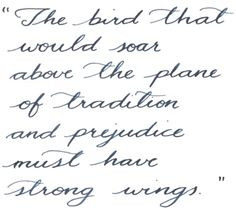 "The bird that
would soar
above the plane
of tradition
and prejudice
must have
strong wings."